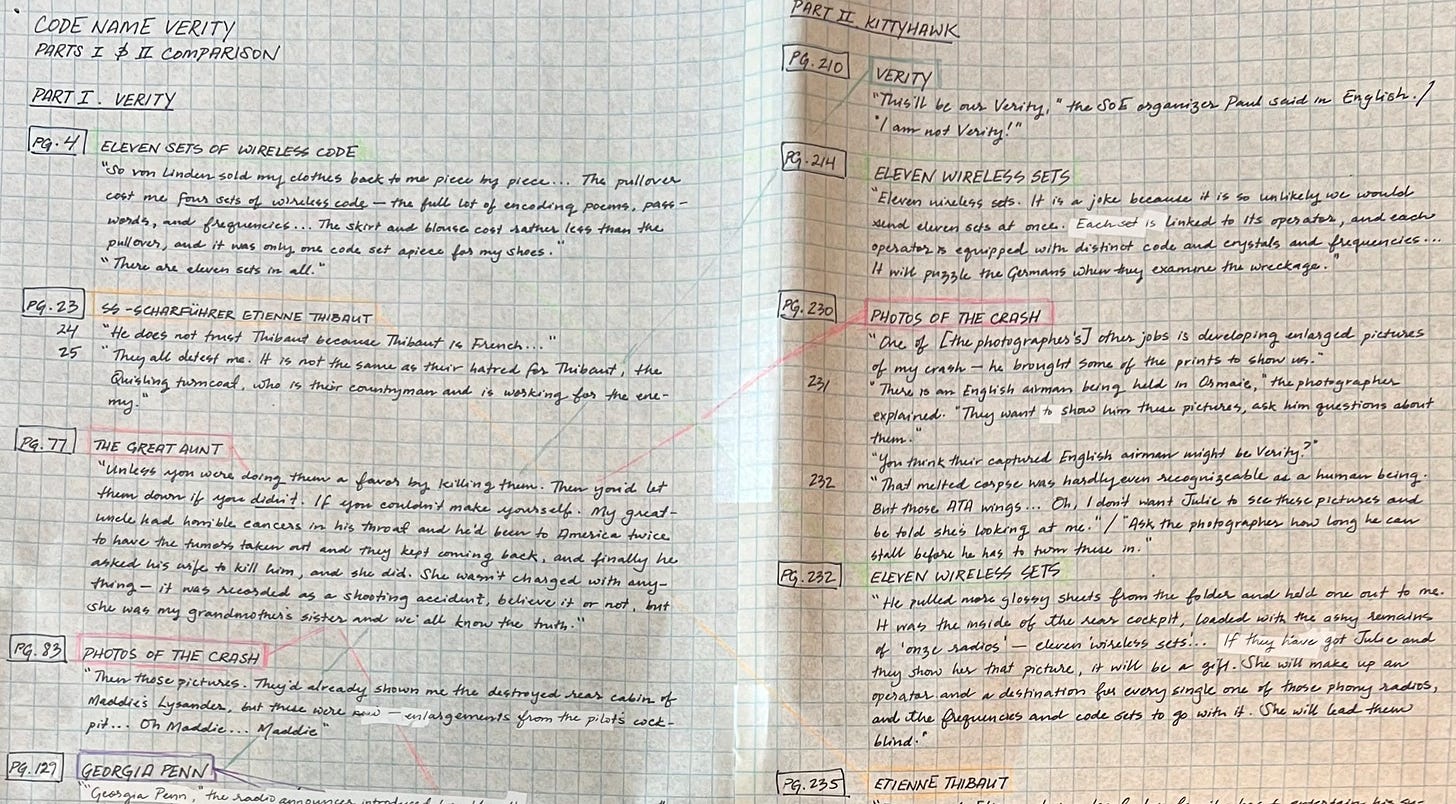 CODE NAME VERITY
PARTS I & II COMPARISON
PART I. VERITY
PG. 4 ELEVEN SETS OF WIRELESS CODE
"So von Linden sold my clothes back to me piece by piece... The pullover
cost me four sets of wireless code — the full lot of encoding poems, pass-
words, and frequencies... The skirt and blouse cost rather less than the
pullover, and it was only one code set apiece for my shoes."
"There are eleven sets in all."
PG. 23 SS-SCHARFÜHRER ETIENNE THIBAUT
24 "He does not trust Thibaut because Thibaut is French..."
25 "They all detest me. It is not the same as their hatred for Thibaut, the
Quisling turncoat, who is their countryman and is working for the ene-
my."
PG. 77 THE GREAT AUNT
"Unless you were doing them a favor by killing them. Then you'd let
them down if you didn't. If you couldn't make yourself. My great-
uncle had horrible cancers in his throat and he'd been to America twice
to have the tumors taken out and they kept coming back, and finally he
asked his wife to kill him, and she did. She wasn't charged with any-
thing — it was recorded as a shooting accident, believe it or not, but
she was my grandmother's sister and we all know the truth."
PG. 83 PHOTOS OF THE CRASH
"Then those pictures. They'd already shown me the destroyed rear cabin of
Maddie's Lysander, but these were — enlargements from the pilot's cock-
pit... Oh Maddie... Maddie"
PG. 129 GEORGIA PENN
"Georgia Penn," the radio announcer
PART II KITTYHAWK
PG. 210 VERITY
"This'll be our Verity," the SOE organizer Paul said in English. /
"I am not Verity!"
PG. 214 ELEVEN WIRELESS SETS
"Eleven wireless sets. It is a joke because it is so unlikely we would
send eleven sets at once. Each set is linked to its operator, and each
operator is equipped with distinct code and crystals and frequencies...
It will puzzle the Germans when they examine the wreckage."
PG. 230 PHOTOS OF THE CRASH
"One of [the photographer's] other jobs is developing enlarged pictures
of my crash — he brought some of the prints to show us."
231 "There is an English airman being held in Ormaie," the photographer
explained. "They want to show him these pictures, ask him questions about
them."
"You think their captured English airman might be Verity?"
232 "That melted corpse was hardly even recognizeable as a human being.
But those ATA wings... Oh, I don't want Julie to see these pictures and
be told she's looking at me." / "Ask the photographer how long he can
stall before he has to turn these in."
PG. 232 ELEVEN WIRELESS SETS
"He pulled more glossy sheets from the folder and held one out to me.
It was the inside of the rear cockpit, loaded with the ashy remains
of 'onze radios' — eleven wireless sets'... If they have got Julie and
they show her that picture, it will be a gift. She will make up an
operator and a destination for every single one of those phony radios,
and the frequencies and code sets to go with it. She will lead them
blind."
PG. 235 ETIENNE THIBAUT